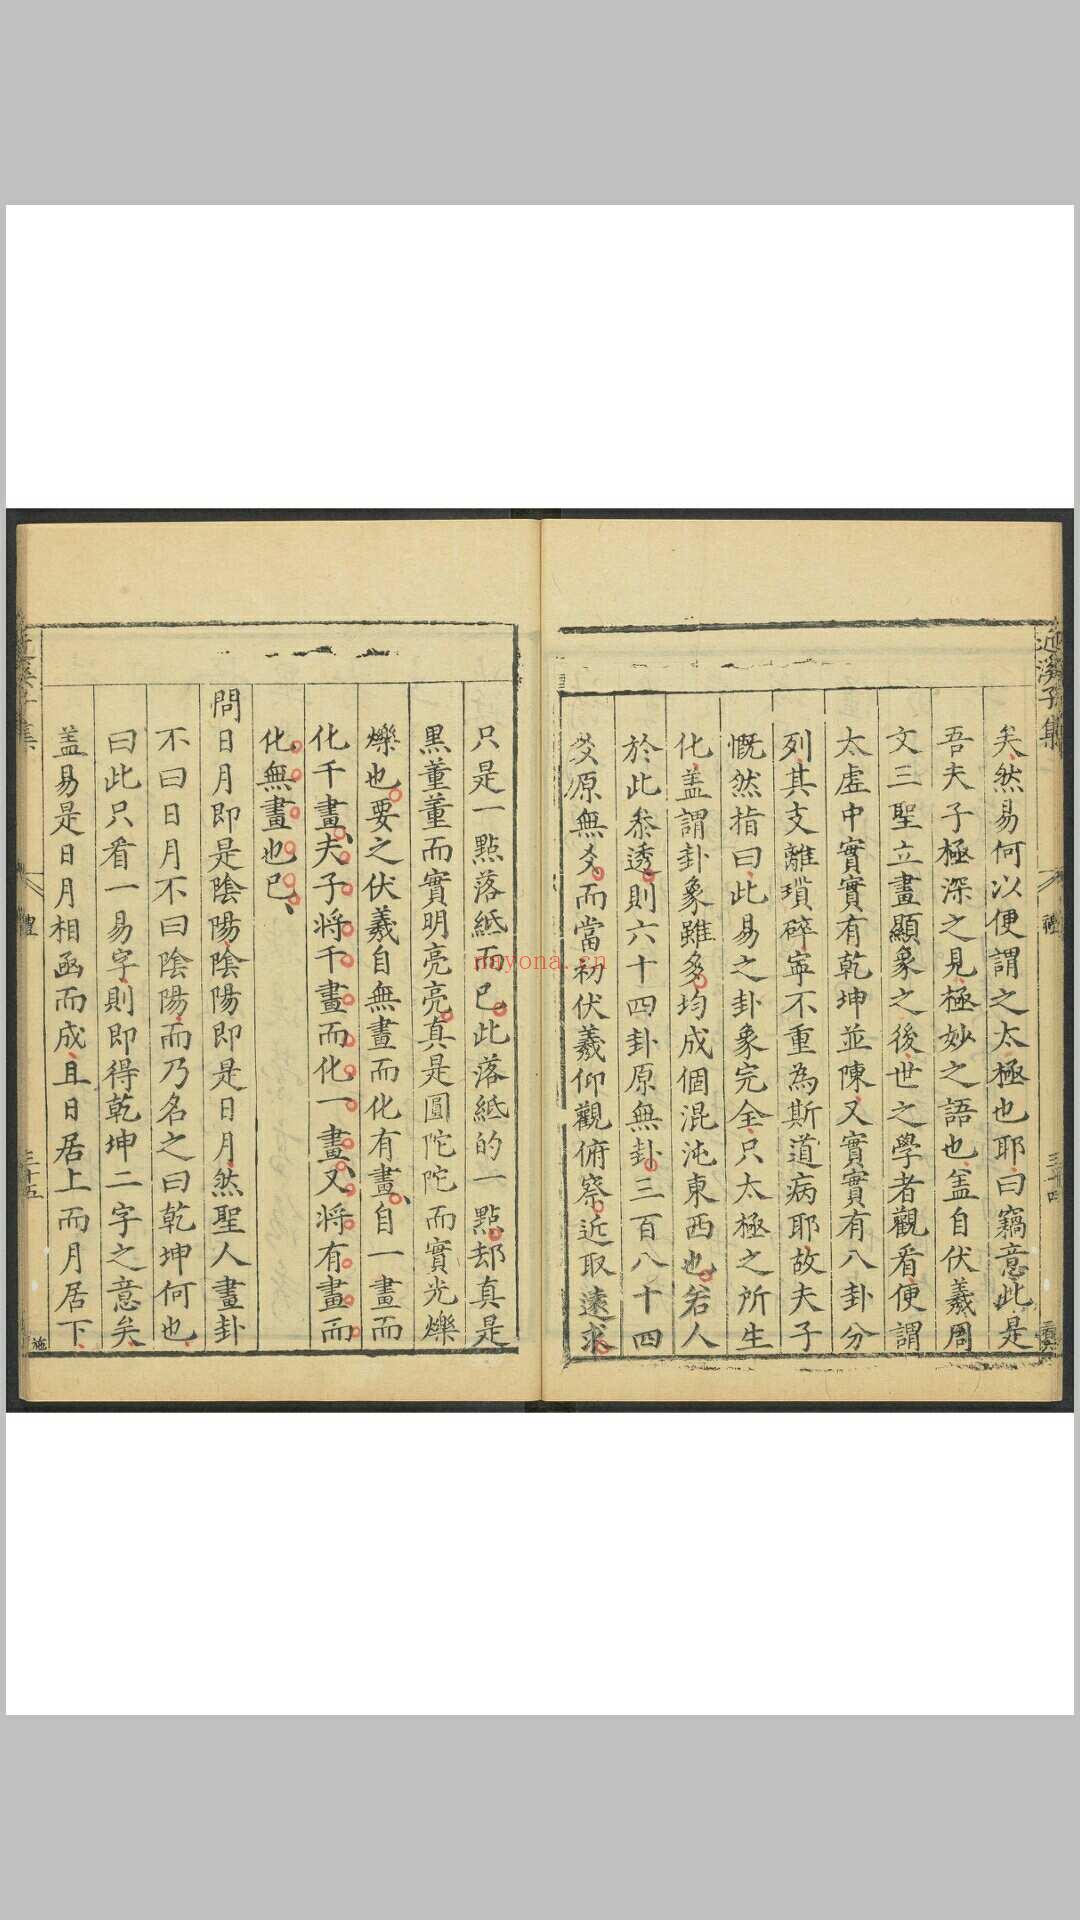 近溪子集
禮
三十四
矣然易何以便謂之太極也耶曰竊意此是
吾夫子極深之見極妙之語也盖自伏羲周
文三聖立畫顯象之後世之學者觀看便謂
太虛中實實有乾坤並陳又實實有八卦分
列其支離瑣碎寧不重為斯道病耶故夫子
慨然指曰此易之卦象完全只太極之所生
化盖謂卦象雖多均成個混沌東西也若人
於此叅透則六十四卦原無卦三百八十四
爻原無爻而當初伏羲仰觀俯察近取遠求
只是一點落紙而已此落紙的一點却真是
黑董董而實明亮亮真是圓陀陀而實光爍
爍也要之伏羲自無畫而化有畫自一畫而
化千畫夫子將千畫而化一畫又將有畫而
化無畫也已
問日月即是陰陽陰陽即是日月然聖人畫卦
不曰日月不曰陰陽而乃名之曰乾坤何也
曰此只看一易字則即得乾坤二字之意矣
盖易是日月相函而成且日居上而月居下
近溪子集
禮
三十五
施
noyona.cn